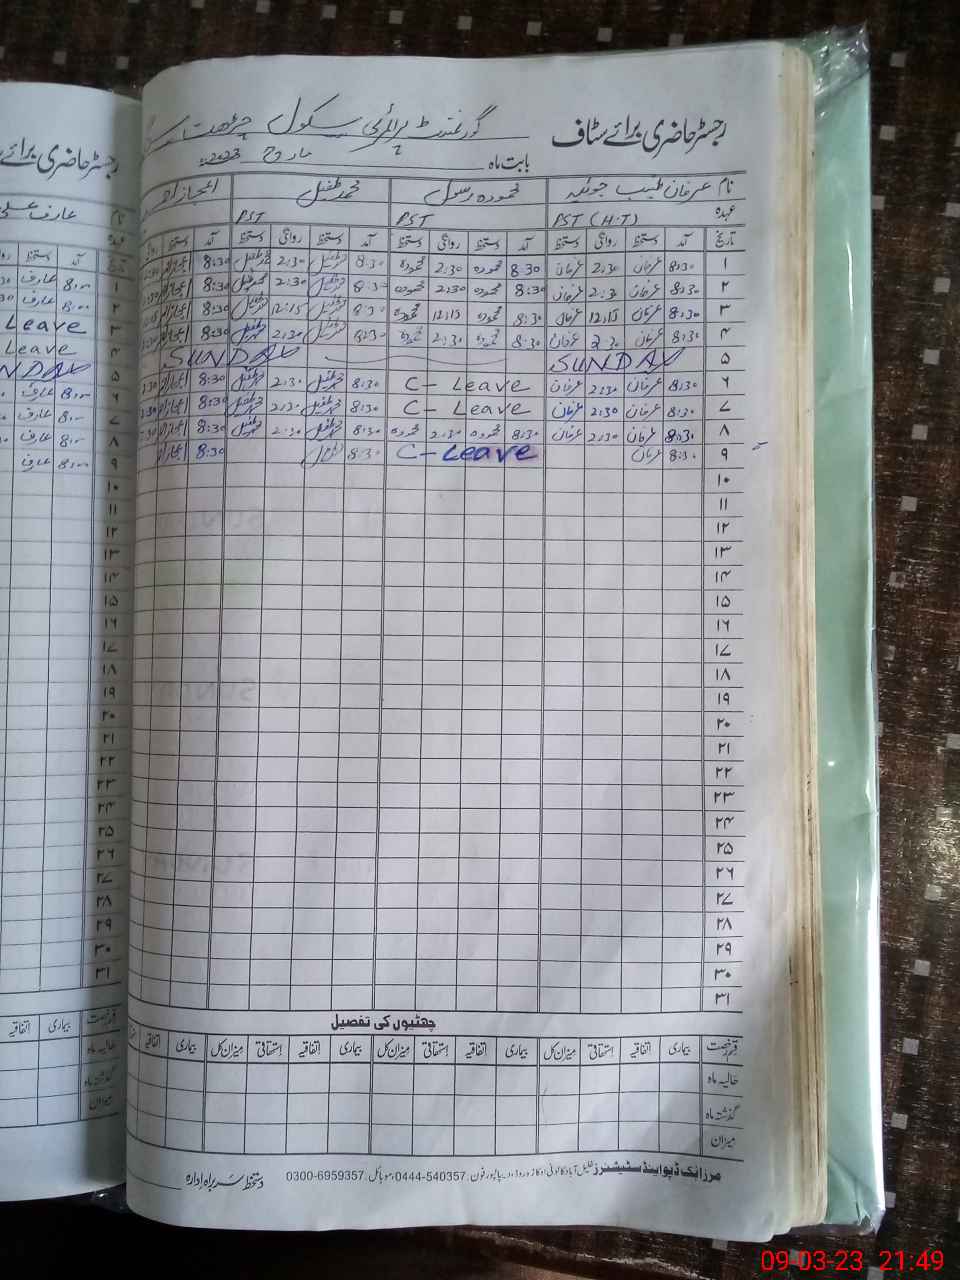 رجسٹر حاضری برائے سٹاف گورنمنٹ پرائمری سکول
بابت ماہ مارچ 2023ء
نام عرفان طیب جوئیہ محمودہ رسول محمد طفیل اعجاز
عہدہ PST (H.T) PST PST
تاریخ آمد دستخط روانگی دستخط آمد دستخط روانگی دستخط آمد دستخط روانگی دستخط آمد دستخط
۱ 8:30 عرفان 2:30 عرفان 8:30 محمودہ 2:30 محمودہ 8:30 محمد طفیل 2:30 محمد طفیل 8:30 اعجاز
۲ 8:30 عرفان 2:30 عرفان 8:30 محمودہ 2:30 محمودہ 8:30 محمد طفیل 2:30 محمد طفیل 8:30 اعجاز
۳ 8:30 عرفان 12:15 عرفان 8:30 محمودہ 12:15 محمودہ 8:30 محمد طفیل 12:15 محمد طفیل 8:30 اعجاز
۴ 8:30 عرفان 2:30 عرفان 8:30 محمودہ 2:30 محمودہ 8:30 محمد طفیل 2:30 محمد طفیل 8:30 اعجاز
۵ SUNDAY SUNDAY
۶ 8:30 عرفان 2:30 عرفان C- Leave 8:30 محمد طفیل 2:30 محمد طفیل 8:30 اعجاز
۷ 8:30 عرفان 2:30 عرفان C- Leave 8:30 محمد طفیل 2:30 محمد طفیل 8:30 اعجاز
۸ 8:30 عرفان 2:30 عرفان 8:30 محمودہ 2:30 محمودہ 8:30 محمد طفیل 2:30 محمد طفیل 8:30 اعجاز
۹ 8:30 عرفان C-Leave 8:30 8:30 اعجاز
۱۰
۱۱
۱۲
۱۳
۱۴
۱۵
۱۶
۱۷
۱۸
۱۹
۲۰
۲۱
۲۲
۲۳
۲۴
۲۵
۲۶
۲۷
۲۸
۲۹
۳۰
۳۱
چھٹیوں کی تفصیل
قسم رخصت بیماری اتفاقیہ استحقاقی میزان کل بیماری اتفاقیہ استحقاقی میزان کل بیماری اتفاقیہ استحقاقی میزان کل بیماری اتفاقیہ
حالیہ ماہ
گذشتہ ماہ
میزان
مرزا بک ڈپو اینڈ سٹیشنرز دیپالپور فون: 0444-540357 موبائل: 0300-6959357
دستخط سربراہ ادارہ
رجسٹر حاضری برائے
نام عارف علی
عہدہ
تاریخ آمد دستخط
۱ 8:00 عارف
۲ 8:00 عارف
۳ Leave
۴ Leave
۵ SUNDAY
۶ 8:00 عارف
۷ 8:00 عارف
۸ 8:00 عارف
۹ 8:00 عارف
۱۰
۱۱
۱۲
۱۳
۱۴
۱۵
۱۶
۱۷
۱۸
۱۹
۲۰
۲۱
۲۲
۲۳
۲۴
۲۵
۲۶
۲۷
۲۸
۲۹
۳۰
۳۱
قسم رخصت بیماری اتفاقیہ
حالیہ ماہ
گذشتہ ماہ
میزان
09-03-23 21:49